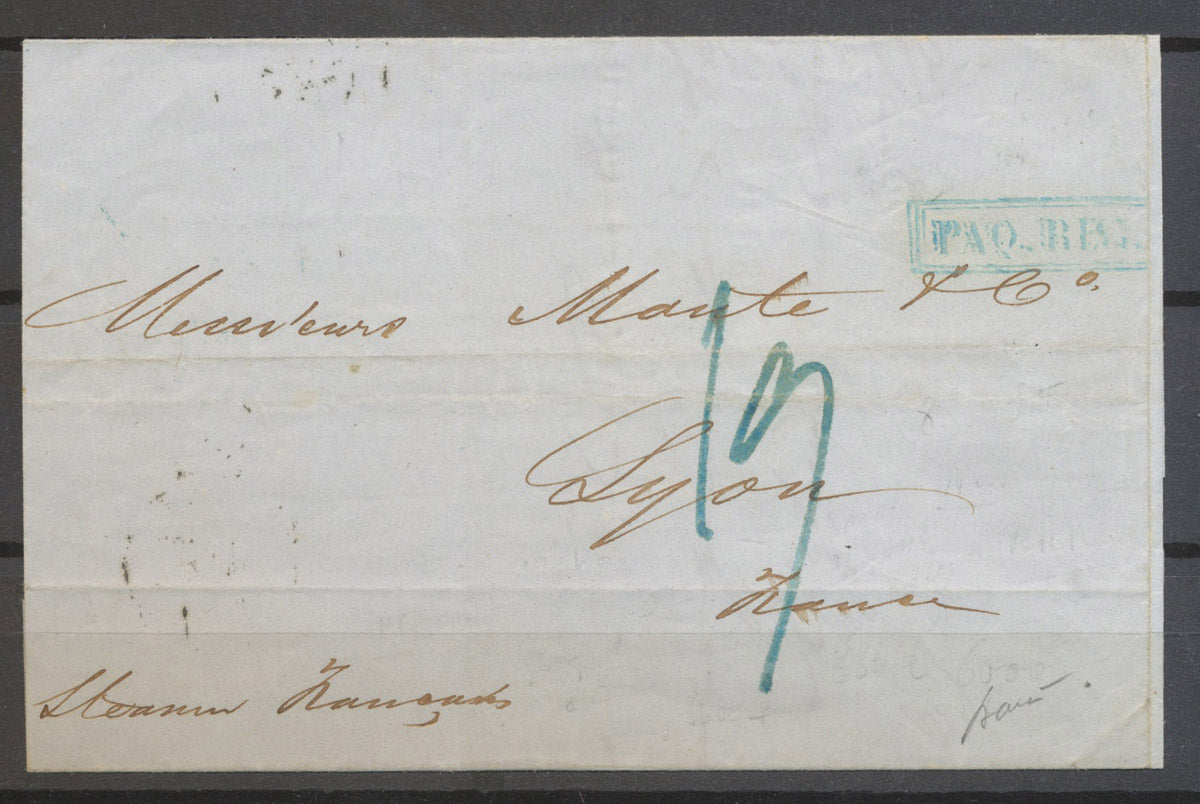 PAQ. REG.
Messieurs Mante & Co.
19
Lyon
France
Steamer Français